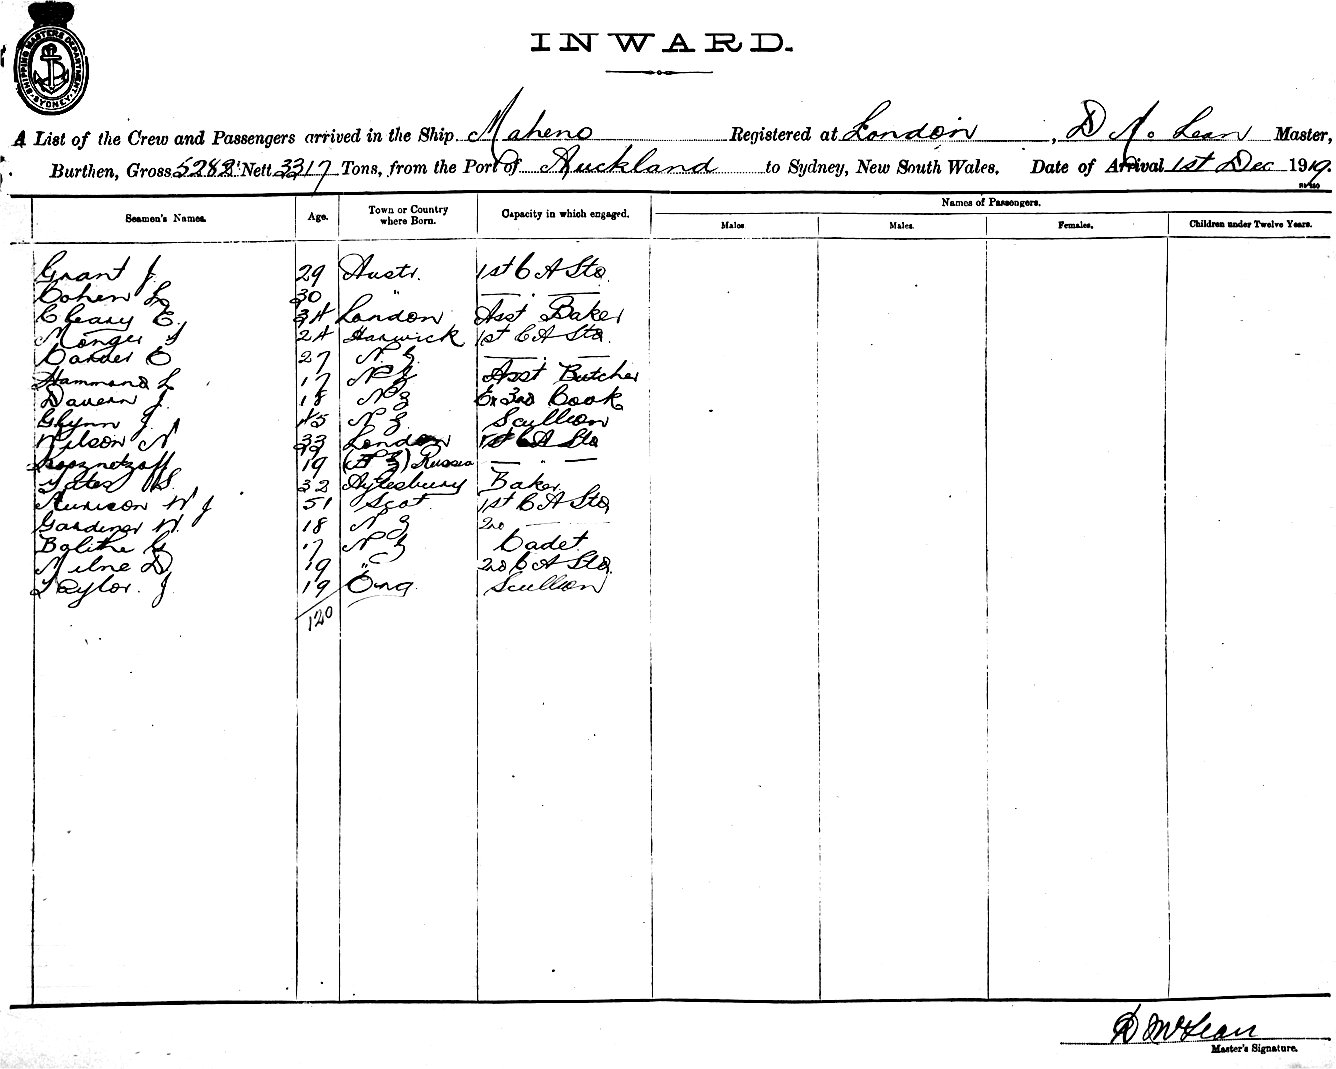 INWARD.
SHIPPING MASTERS DEPARTMENT SYDNEY
A List of the Crew and Passengers arrived in the Ship Maheno Registered at London, D Mc Lean Master,
Burthen, Gross 5282 Nett 3317 Tons, from the Port of Auckland to Sydney, New South Wales. Date of Arrival 1st Dec 1919.
Names of Passengers.
Seamen's Names. Age. Town or Country where Born. Capacity in which engaged. Males Males. Females. Children under Twelve Years.
Grant J 29 Austr. 1st C A Std
Cohen L 30 " — . —
Cleary E. 34 London Asst Baker
Monger 24 Harwick 1st C A Std
E 27 N. Z — . —
Hammond L 17 N Z Asst Butcher
Davern J. 18 N Z Ex 3rd Cook
Glynn J. 45 N Z. Scullion
Wilson N 33 London 1st C A Std
19 (N Z) Russia — . —
Yates S. 32 Aylesbury Baker
W J 51 Scot 1st C A Std
Gardiner W. 18 N Z 2nd —
G 17 N Z Cadet
Milne D 19 " 2nd C A Std
Taylor. J 19 Eng. Scullion
120
D McLean
Master's Signature.